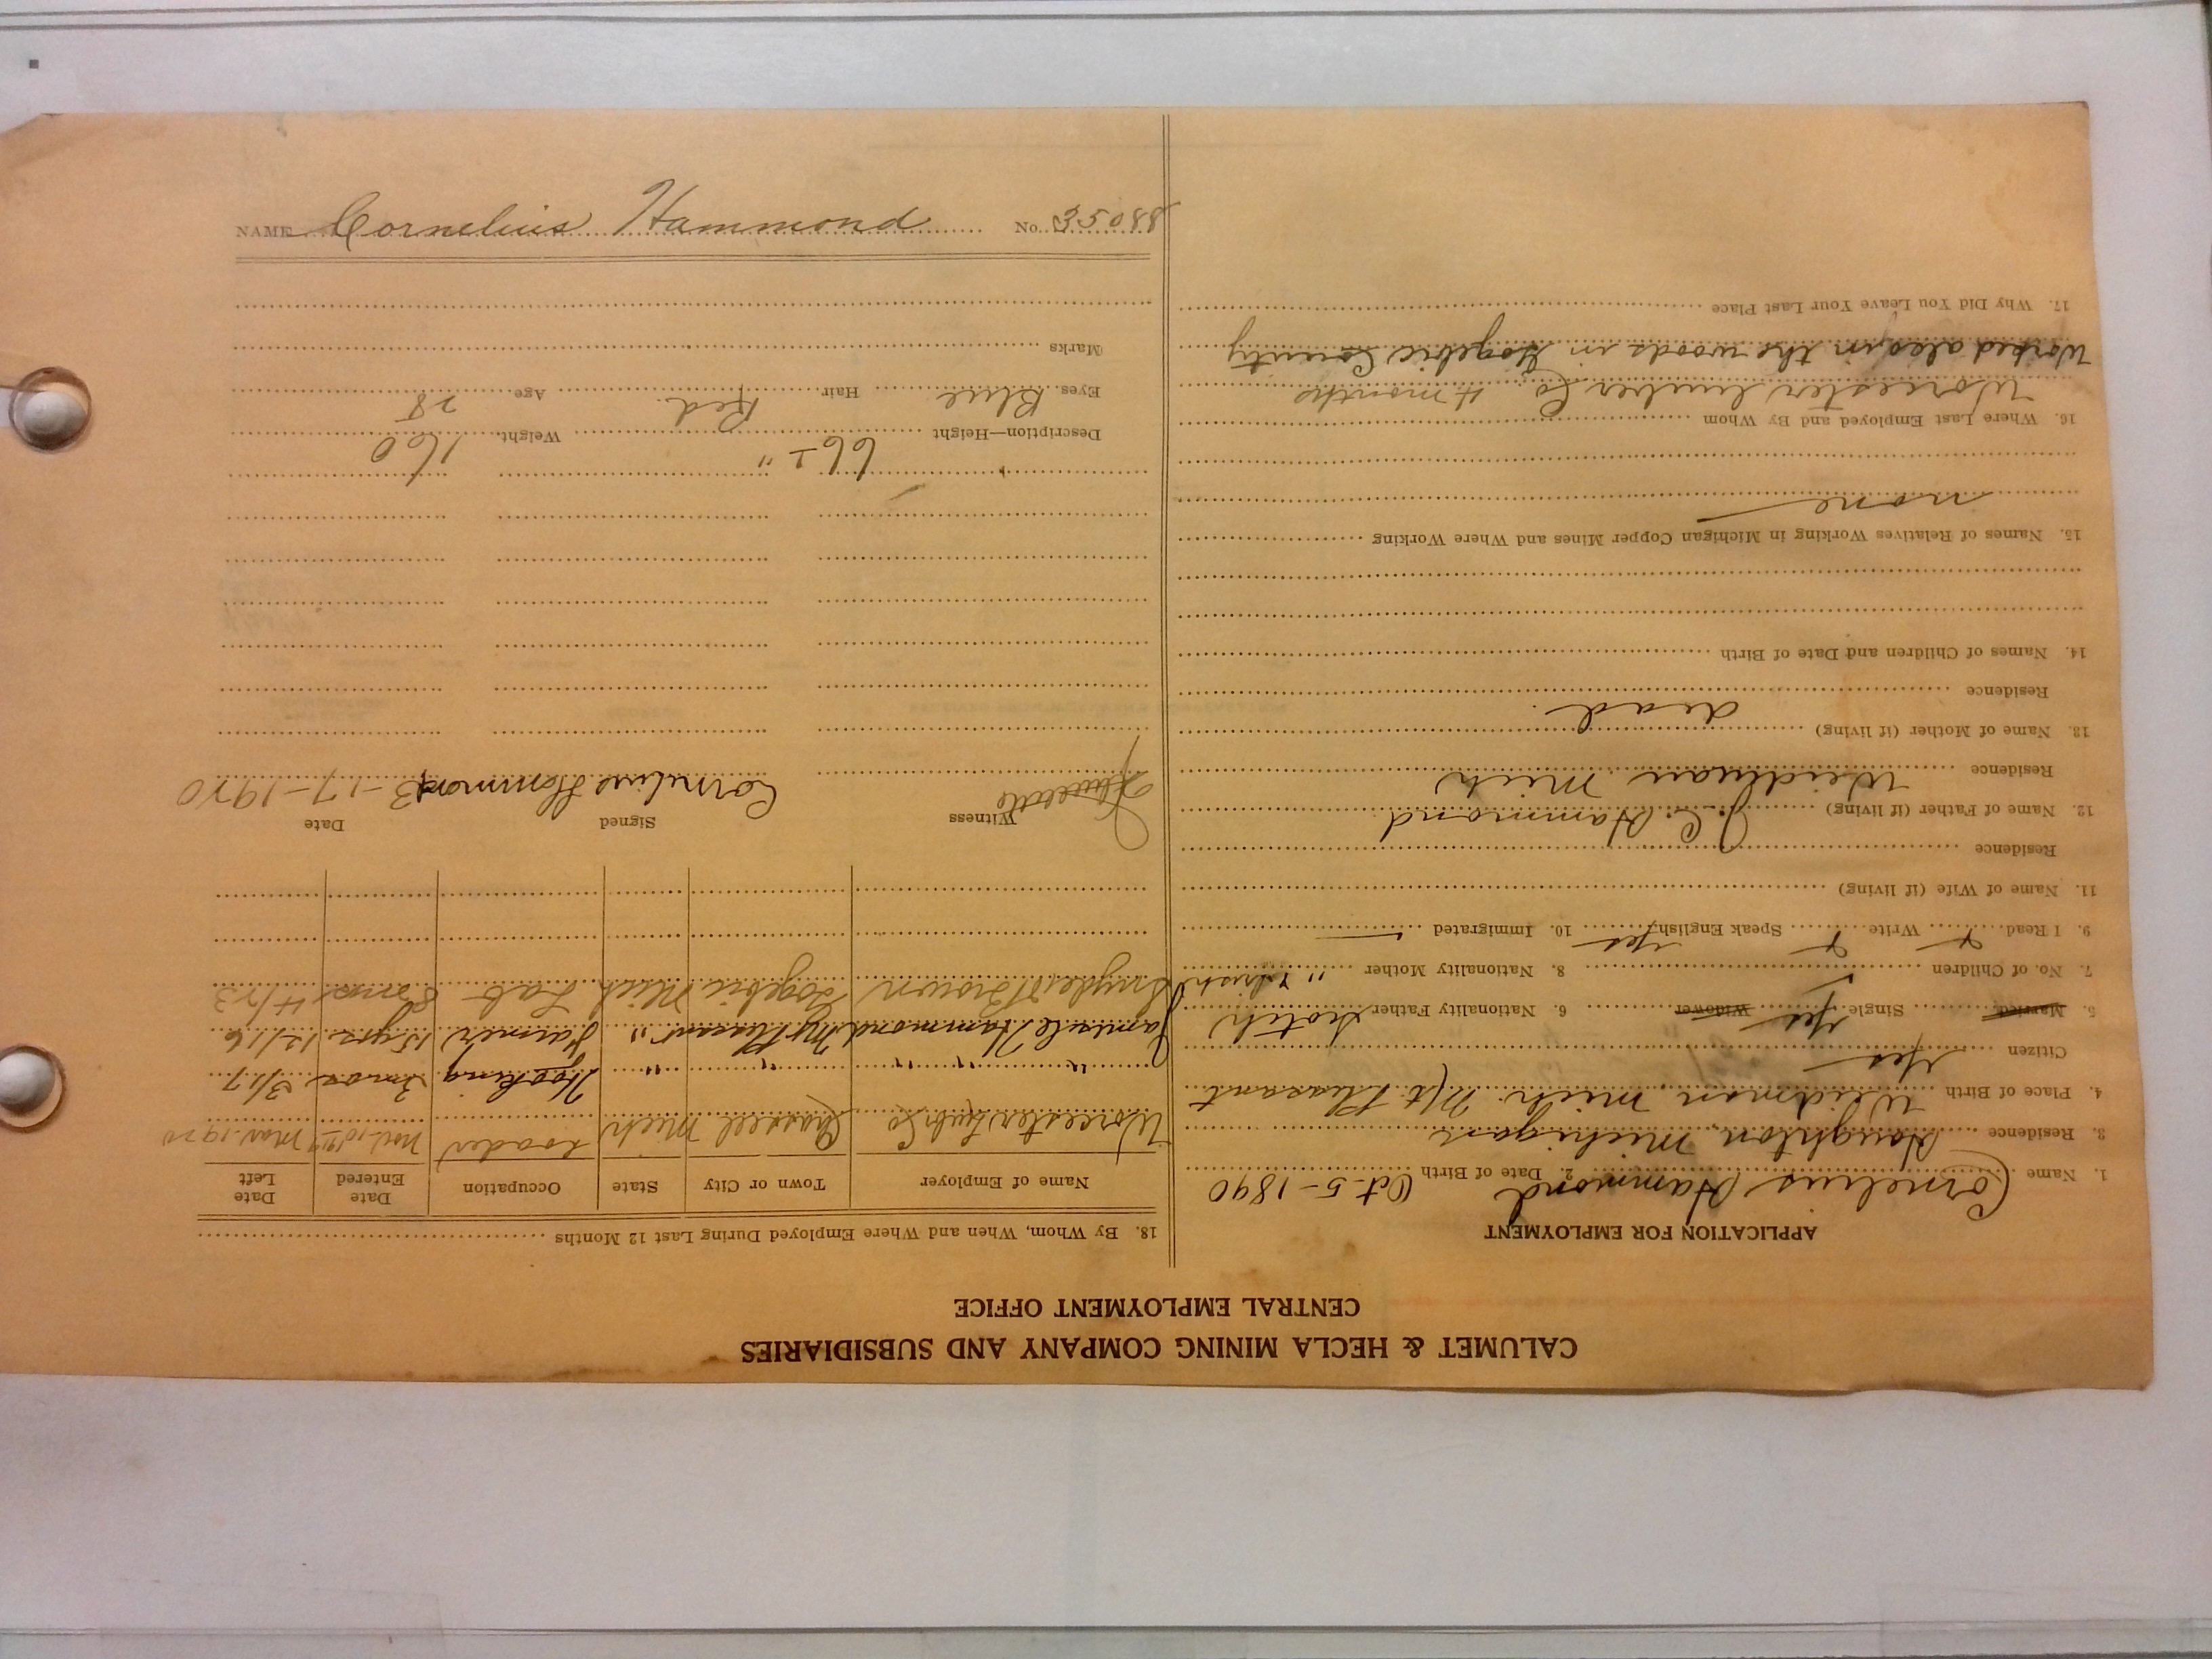 CALUMET & HECLA MINING COMPANY AND SUBSIDIARIES
CENTRAL EMPLOYMENT OFFICE
APPLICATION FOR EMPLOYMENT
1. Name Cornelius Hammond 2. Date of Birth Oct. 5-1890
3. Residence Houghton, Michigan
4. Place of Birth Weidman Mich. Mt. Pleasant
Citizen Yes
5. Married Single Yes Widower 6. Nationality Father Scotch
7. No. of Children 8. Nationality Mother " & Irish
9. I Read Write Speak English yes 10. Immigrated —
11. Name of Wife (if living)
Residence
12. Name of Father (if living) J. C. Hammond
Residence Weidman Mich
13. Name of Mother (if living) dead.
Residence
14. Names of Children and Date of Birth
15. Names of Relatives Working in Michigan Copper Mines and Where Working
none
16. Where Last Employed and By Whom
Worcester Lumber Co. 4 months
Worked also in the woods in Gogebic County
17. Why Did You Leave Your Last Place
18. By Whom, When and Where Employed During Last 12 Months
Name of Employer Town or City State Occupation Date Entered Date Left
Worcester Lumb Co Chassell Mich Loader Nov. 1919 Mar. 1920
" " " " " Hooking 3 mos 3/17
Hammond Mt Pleasant " Farmer 15 yrs 12/16
Snyder & Brown Gogebic Mich Lab 8 mos 4/23
Witness Signed Date
Cornelius Hammond 3-17-1920
Description—Height 66 " Weight 160
Eyes Blue Hair Red. Age 28
Marks
NAME Cornelius Hammond No. 35088